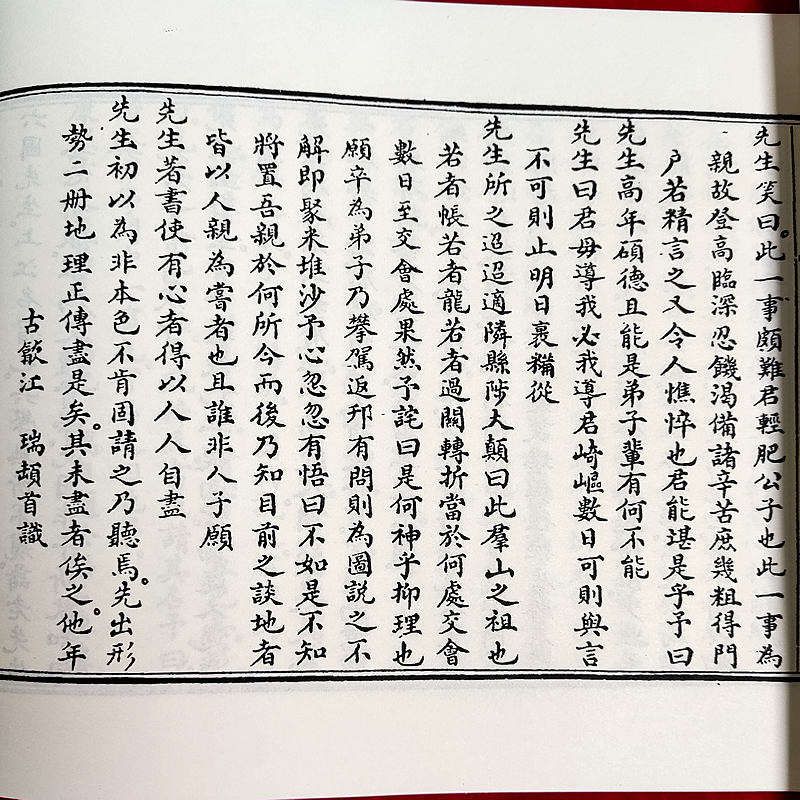 先生笑曰此一事頗難君輕肥公子也此一事為
親故登高臨深忍饑渴備諸辛苦庶幾粗得門
戶若精言之又令人憔悴也君能堪是乎予曰
先生高年碩德且能是弟子輩有何不能
先生曰君毋導我必我導君崎嶇數日可則與言
不可則止明日裹糒從
先生所之迢迢適隣縣陟大顛曰此羣山之祖也
若者帳若者龍若者過關轉折當於何處交會
數日至交會處果然予詫曰是何神乎抑理也
願卒為弟子乃攀駕返邘有問則為圖說之不
解即聚米堆沙予心忽忽有悟曰不如是不知
將置吾親於何所今而後乃知目前之談地者
皆以人親為嘗者也且誰非人子願
先生著書使有心者得以人人自盡
先生初以為非本色不肯固請之乃聽焉。先出形
勢二冊地理正傳盡是矣。其未盡者俟之。他年
古歙江 瑞頓首識